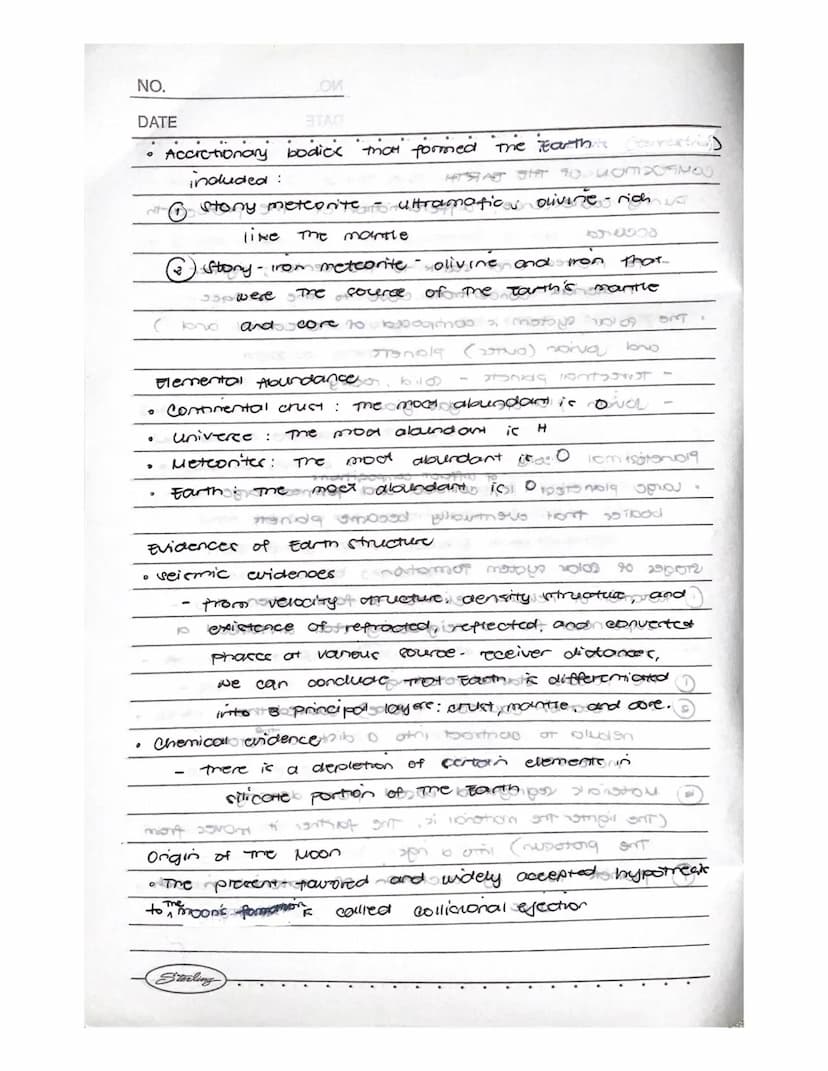 NO.
DATE
• Accretionary bodies that formed the Earth
included :
① Stony meteorite - ultramafic, olivine - rich
like the mantle
② Stony - iron meteorite - olivine and iron that
were the source of the Earth's mantle
and core
Elemental Abundance
• Continental crust : The most abundant is O
• Universe : The most abundant is H
• Meteorites : The most abundant is O
• Earth : The most abundant is O
Evidences of Earth Structure
• Seismic evidences
- from velocity structure, density structure, and
existence of refracted, reflected, and converted
phases at various source - receiver distances,
we can conclude that Earth is differentiated
into 3 principal layers: crust, mantle, and core.
• Chemical evidence
- there is a depletion of certain elements in
silicate portion of the Earth
Origin of the Moon
• The present favored and widely accepted
to the Moon's formation is called collisional ejection
Sterling